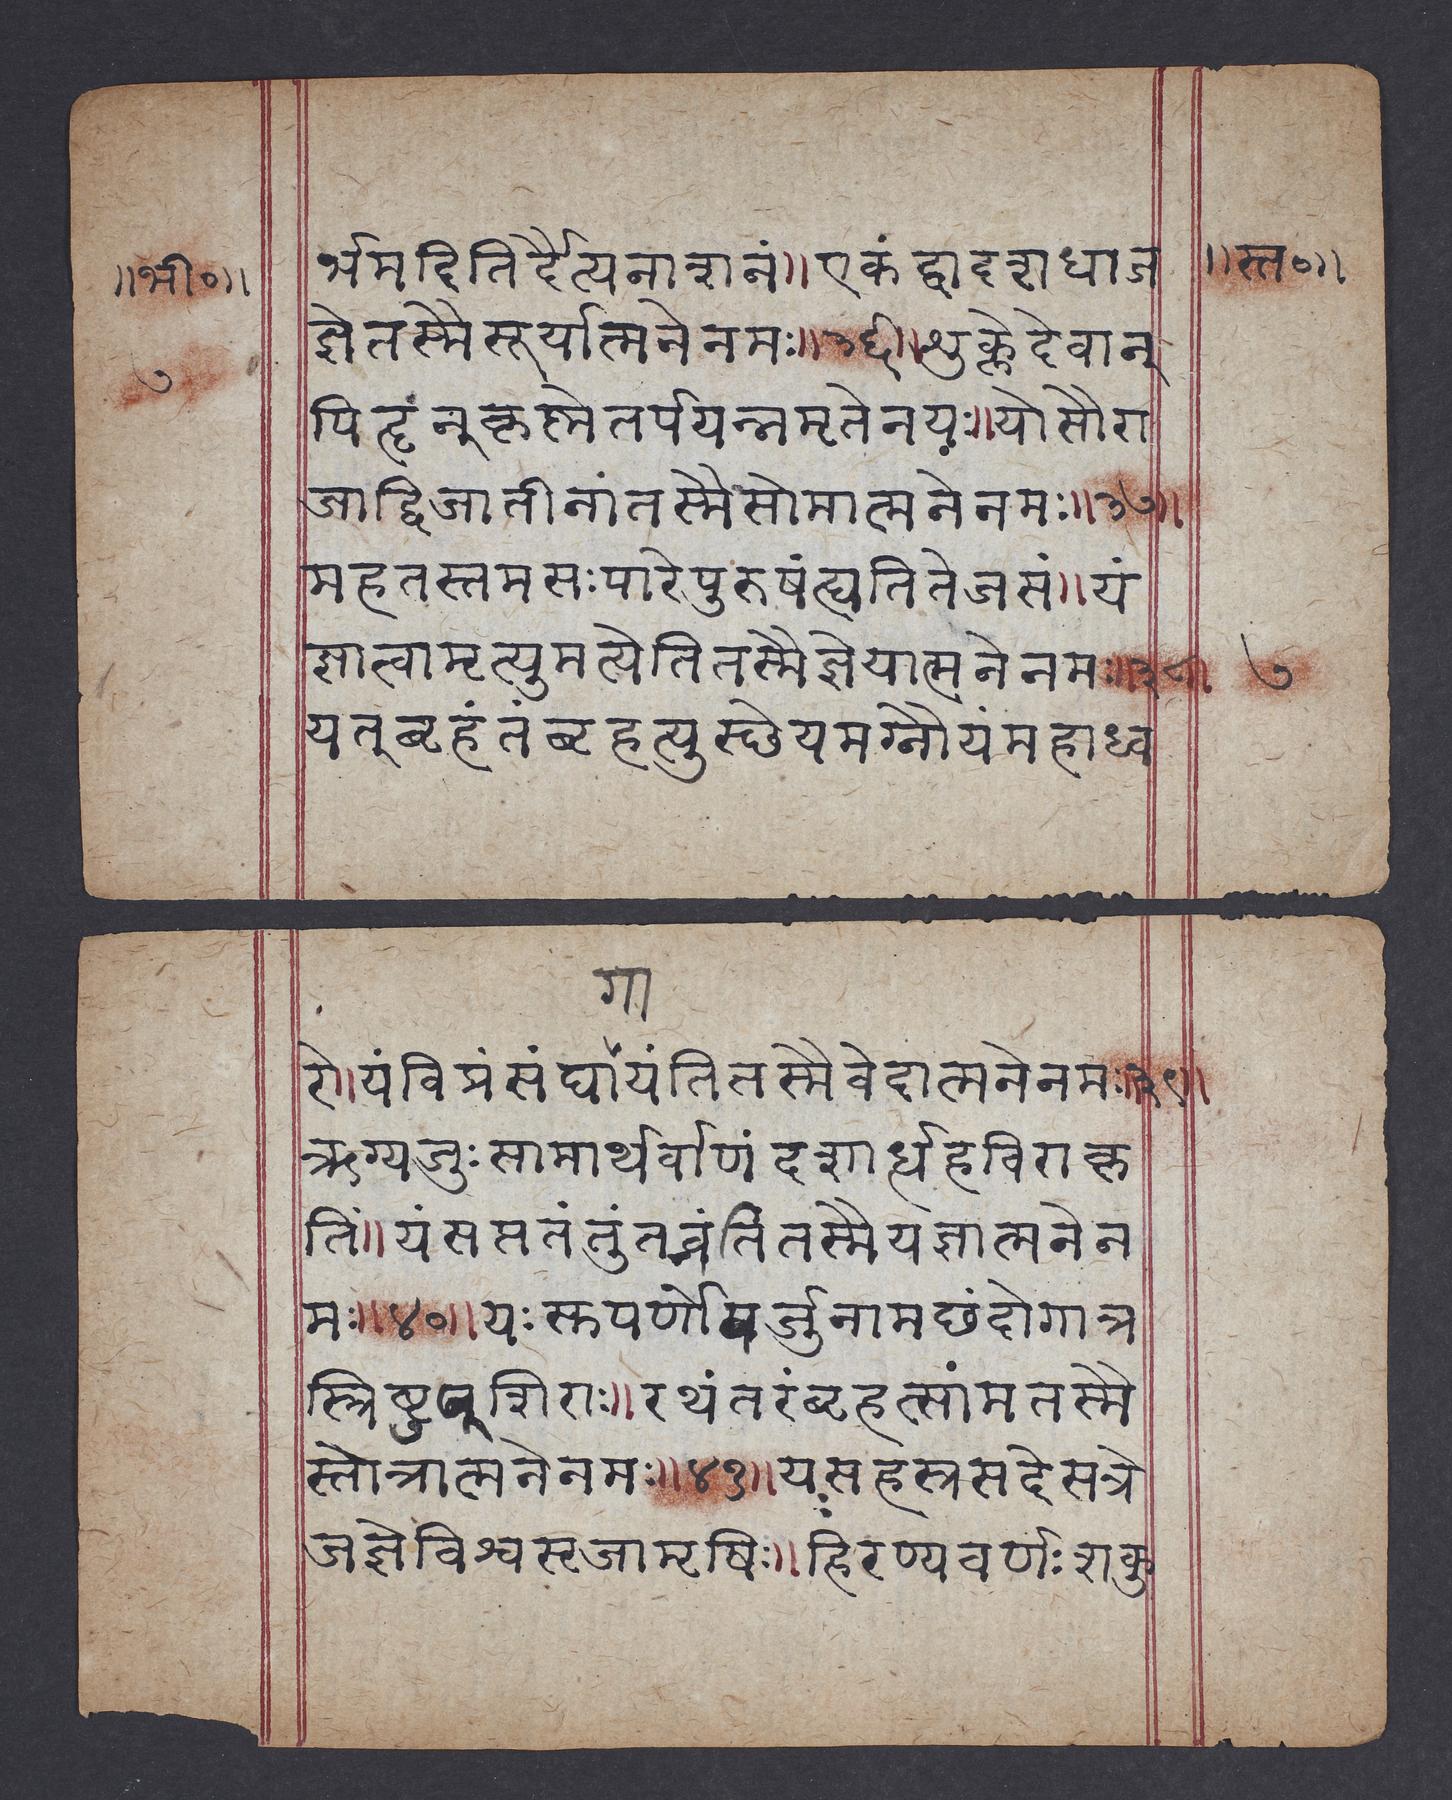 ॥भी०॥
७
र्भमदितिर्दैत्यनाशनं॥एकंद्वादशधाज
॥स्त०॥
ज्ञेतस्मैसूर्यात्मनेनमः॥३६॥शुक्लेदेवान्
पितॄंन्कृष्णेतर्पयन्नमृतेनयः॥योसौरा
जाद्विजातीनांतस्मैसोमात्मनेनमः॥३७॥
महतस्तमसःपारेपुरुषंत्द्यतितेजसं॥यं
ज्ञात्वामृत्युमत्येतितस्मैज्ञेयात्मनेनमः॥३८॥
७
यत्बृहंतंबृहत्युस्छेयमग्नौयंमहाध्व
गा
रे॥यंविप्रंसंघायंतितस्मैवेदात्मनेनमः॥३९॥
ऋग्यजुःसामार्थर्वाणंदशार्धहविराकृ
तिं॥यंसप्ततंतुंतन्वंतितस्मैयज्ञात्मनेन
मः॥४०॥यःसुपर्णोयर्जुनामछंदोगात्र
स्त्रिष्टुप्शिराः॥रथंतरंबृहत्सांमतस्मै
स्तोत्रात्मनेनमः॥४१॥यःसहस्रसदेसत्रे
जज्ञेविश्वसृजामृषिः॥हिरण्यवर्णःशकु